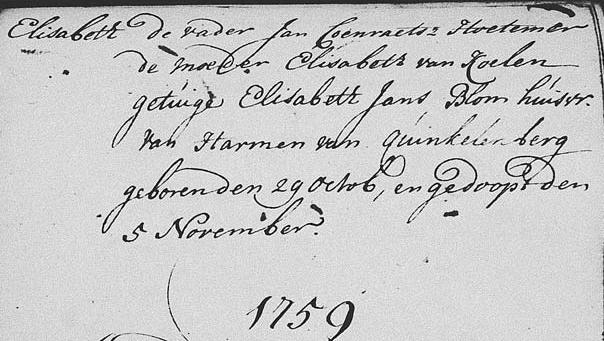 Elisabeth de vader Jan Coenraets: Hoetemer
de moeder Elisabeth van Koelen
getuige Elisabeth Jans Blom huisvr.
van Harmen van Quinkelenberg
geboren den 29 Octob, en gedoopt den
5 November.
1759